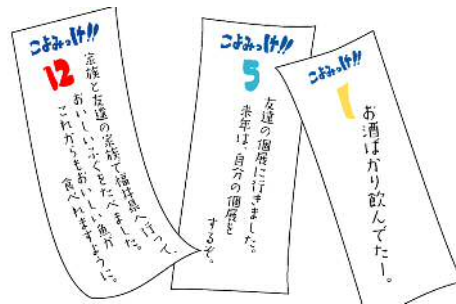 こよみっけ!!
12
家族と友達の家族で福井県へ行って、
おいしいふぐをたべました。
これからもおいしい魚が
食べれますように。
こよみっけ!!
5
友達の個展に行きました。
来年は、自分の個展を
するぞ。
こよみっけ!!
1
お酒ばかり飲んでたー。